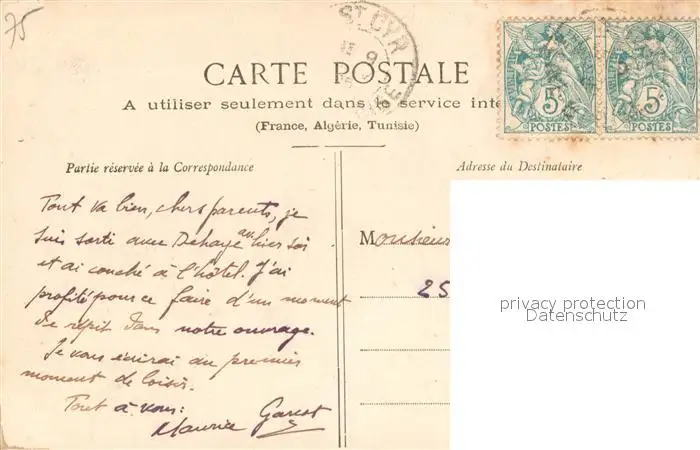 75
ST CYR
CARTE POSTALE
A utiliser seulement dans le service inté
(France, Algérie, Tunisie)
5c 5c
POSTES POSTES
Partie réservée à la Correspondance
Adresse du Destinataire
Tout va bien, chers parents, je
suis sorti avec Dehaye av. hier soir
et ai couché à l'hôtel. J'ai
profité pour ce faire d'un moment
de répit dans notre ouvrage.
Je vous écrirai au premier
moment de loisir.
Tout à vous:
Maurice
Monsieur
25
privacy protection
Datenschutz